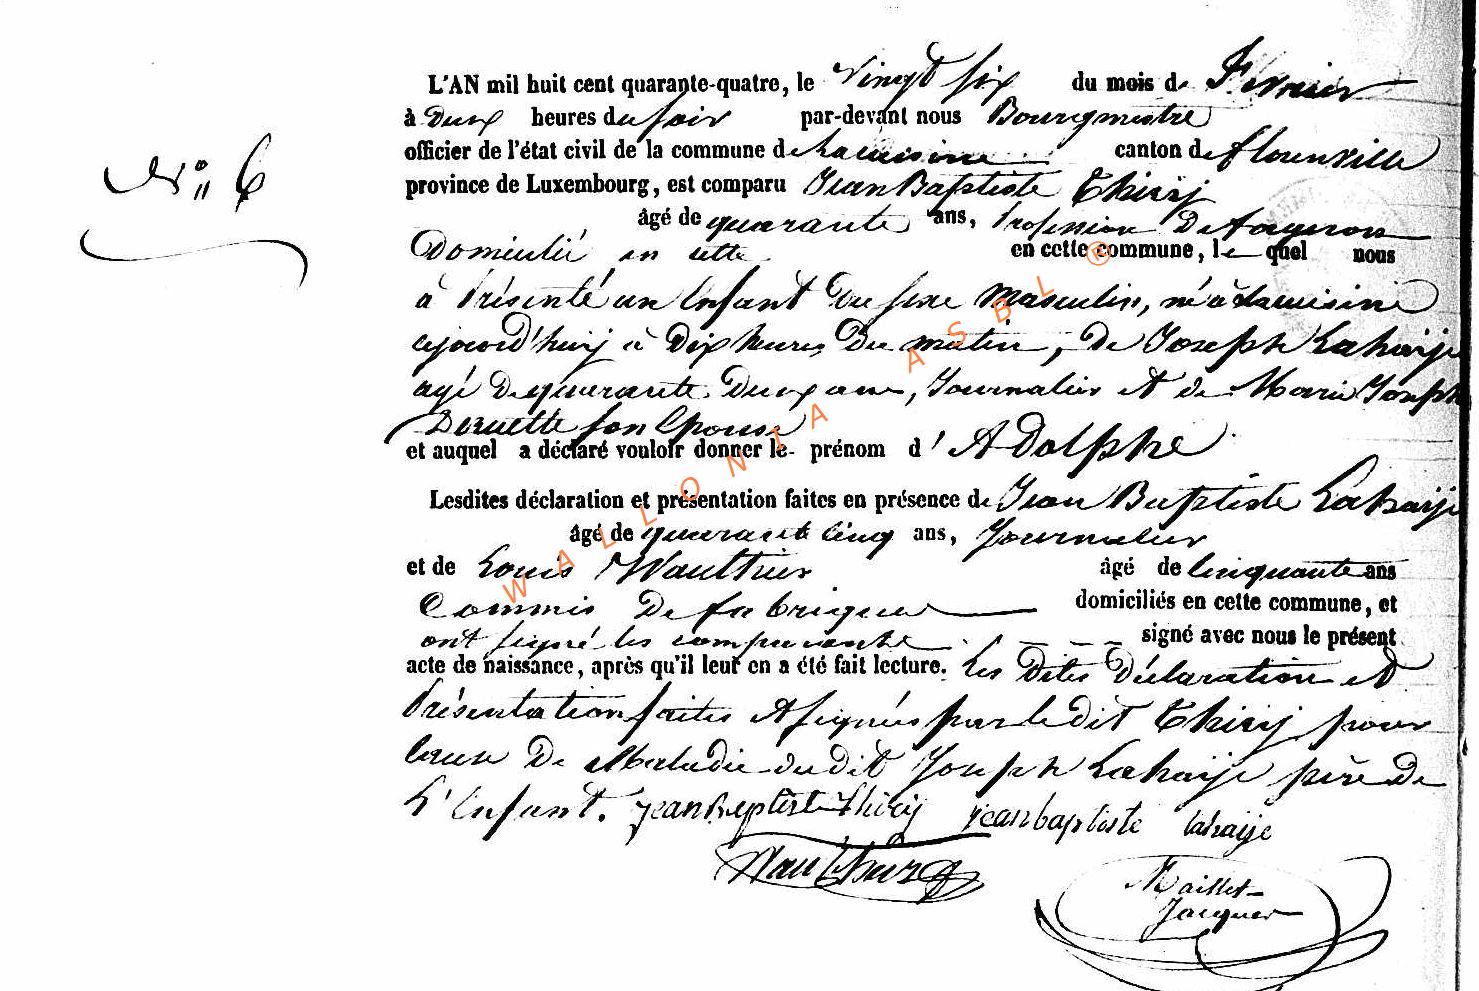 L'AN mil huit cent quarante-quatre, le vingt six du mois de Fevrier
à deux heures du soir par-devant nous Bourgmestre
officier de l'état civil de la commune de Lacuisine canton de florenville
province de Luxembourg, est comparu Jean Baptiste Thiry
N° 6
âgé de quarante ans, Profession De
Domicilié en cette en cette commune, le quel nous
à Présenté un Enfant du sexe Masculin, né à Lacuisine
ajourd'huij à Dix heures Du matin, De Joseph Lahaije
agé De quarante Deux ans, Journalier et de Marie Joseph
son Epouse
et auquel a déclaré vouloir donner le prénom d' Adolphe
Lesdites déclaration et présentation faites en présence de Jean Baptiste Lahaije
âgé de quarante cinq ans, Journalier
et de Louis Wauthier âgé de cinquante ans
Commis De fabrique domiciliés en cette commune, et
ont signé les comparants signé avec nous le présent
acte de naissance, après qu'il leur en a été fait lecture. Les Dites Déclaration et
Présentation faites et signées par le dit Thirij pour
Cause De Maladie du dit Joseph Lahaije père De
L'Enfant. jean Baptiste thiry jean baptiste lahaije
Wauthier
Maillet-
Jacques
WALLONIA ASBL ®